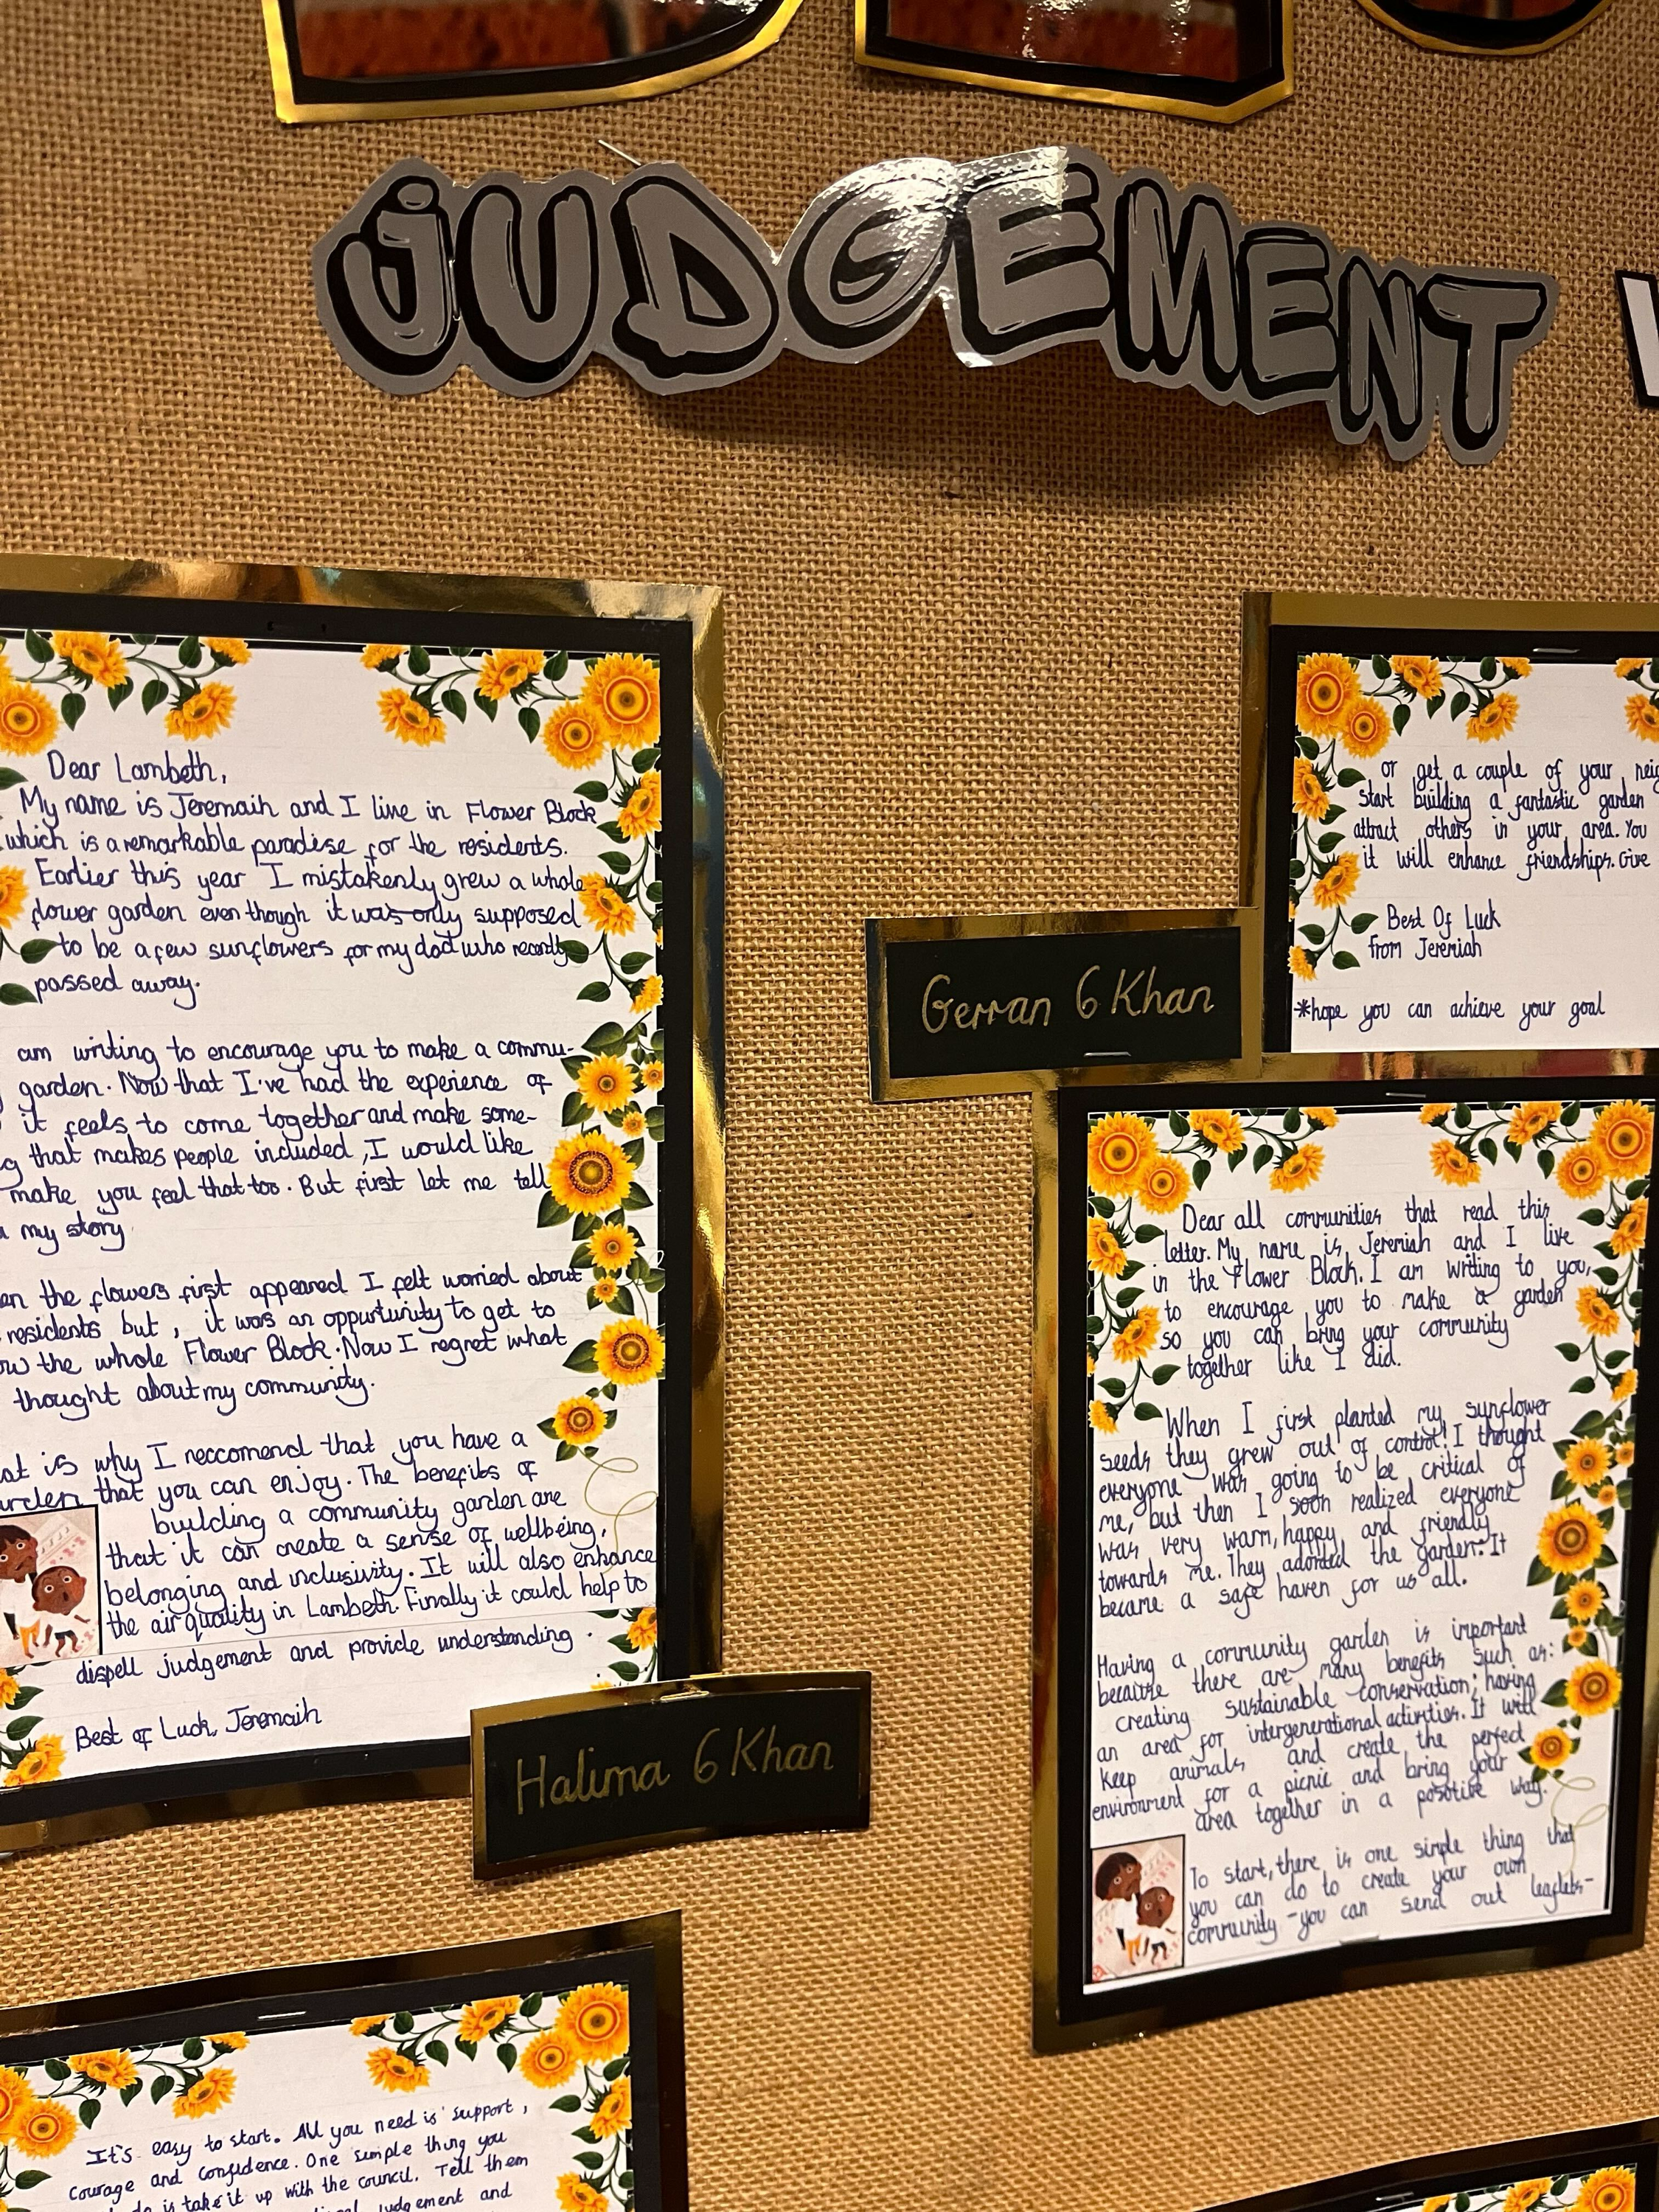 JUDGEMENT
Dear Lambeth,
My name is Jeremaih and I live in Flower Block
which is a remarkable paradise for the residents.
Earlier this year I mistakenly grew a whole
flower garden even though it was only supposed
to be a few sunflowers for my dad who recently
passed away.
am writing to encourage you to make a commu-
garden. Now that I've had the experience of
it feels to come together and make some-
that makes people included, I would like
make you feel that too. But first let me tell
my story
the flowers first appeared I felt worried about
residents but, it was an oppurtunity to get to
the whole Flower Block. Now I regret what
thought about my community.
is why I reccomend that you have a
that you can enjoy. The benefits of
building a community garden are
that it can create a sense of wellbeing,
belonging and inclusivity. It will also enhance
the air quality in Lambeth. Finally it could help to
dispell judgement and provide understanding.
Best of Luck, Jeremaih
Halima 6 Khan
It's easy to start. All you need is support,
courage and confidence. One simple thing you
do is take it up with the council. Tell them
judgement and
or get a couple of your
start building a fantastic garden
attract others in your area. You
it will enhance friendships. Give
Best Of Luck
from Jeremiah
*hope you can achieve your goal
Gerran 6 Khan
Dear all communities that read this
letter. My name is Jeremiah and I live
in the Flower Block. I am writing to you,
to encourage you to make a garden
so you can bring your community
together like I did.
When I first planted my sunflower
seeds they grew out of control! I thought
everyone was going to be critical of
me, but then I soon realized everyone
was very warm, happy and friendly
towards me. They adorded the garden. It
became a safe haven for us all.
Having a community garden is important
because there are many benefits such as:
creating sustainable conservation; having
an area for intergenerational activities. It will
keep animals and create the perfect
environment for a picnic and bring your
area together in a posotive way.
To start, there is one simple thing that
you can do to create your own
community - you can send out leaflets-